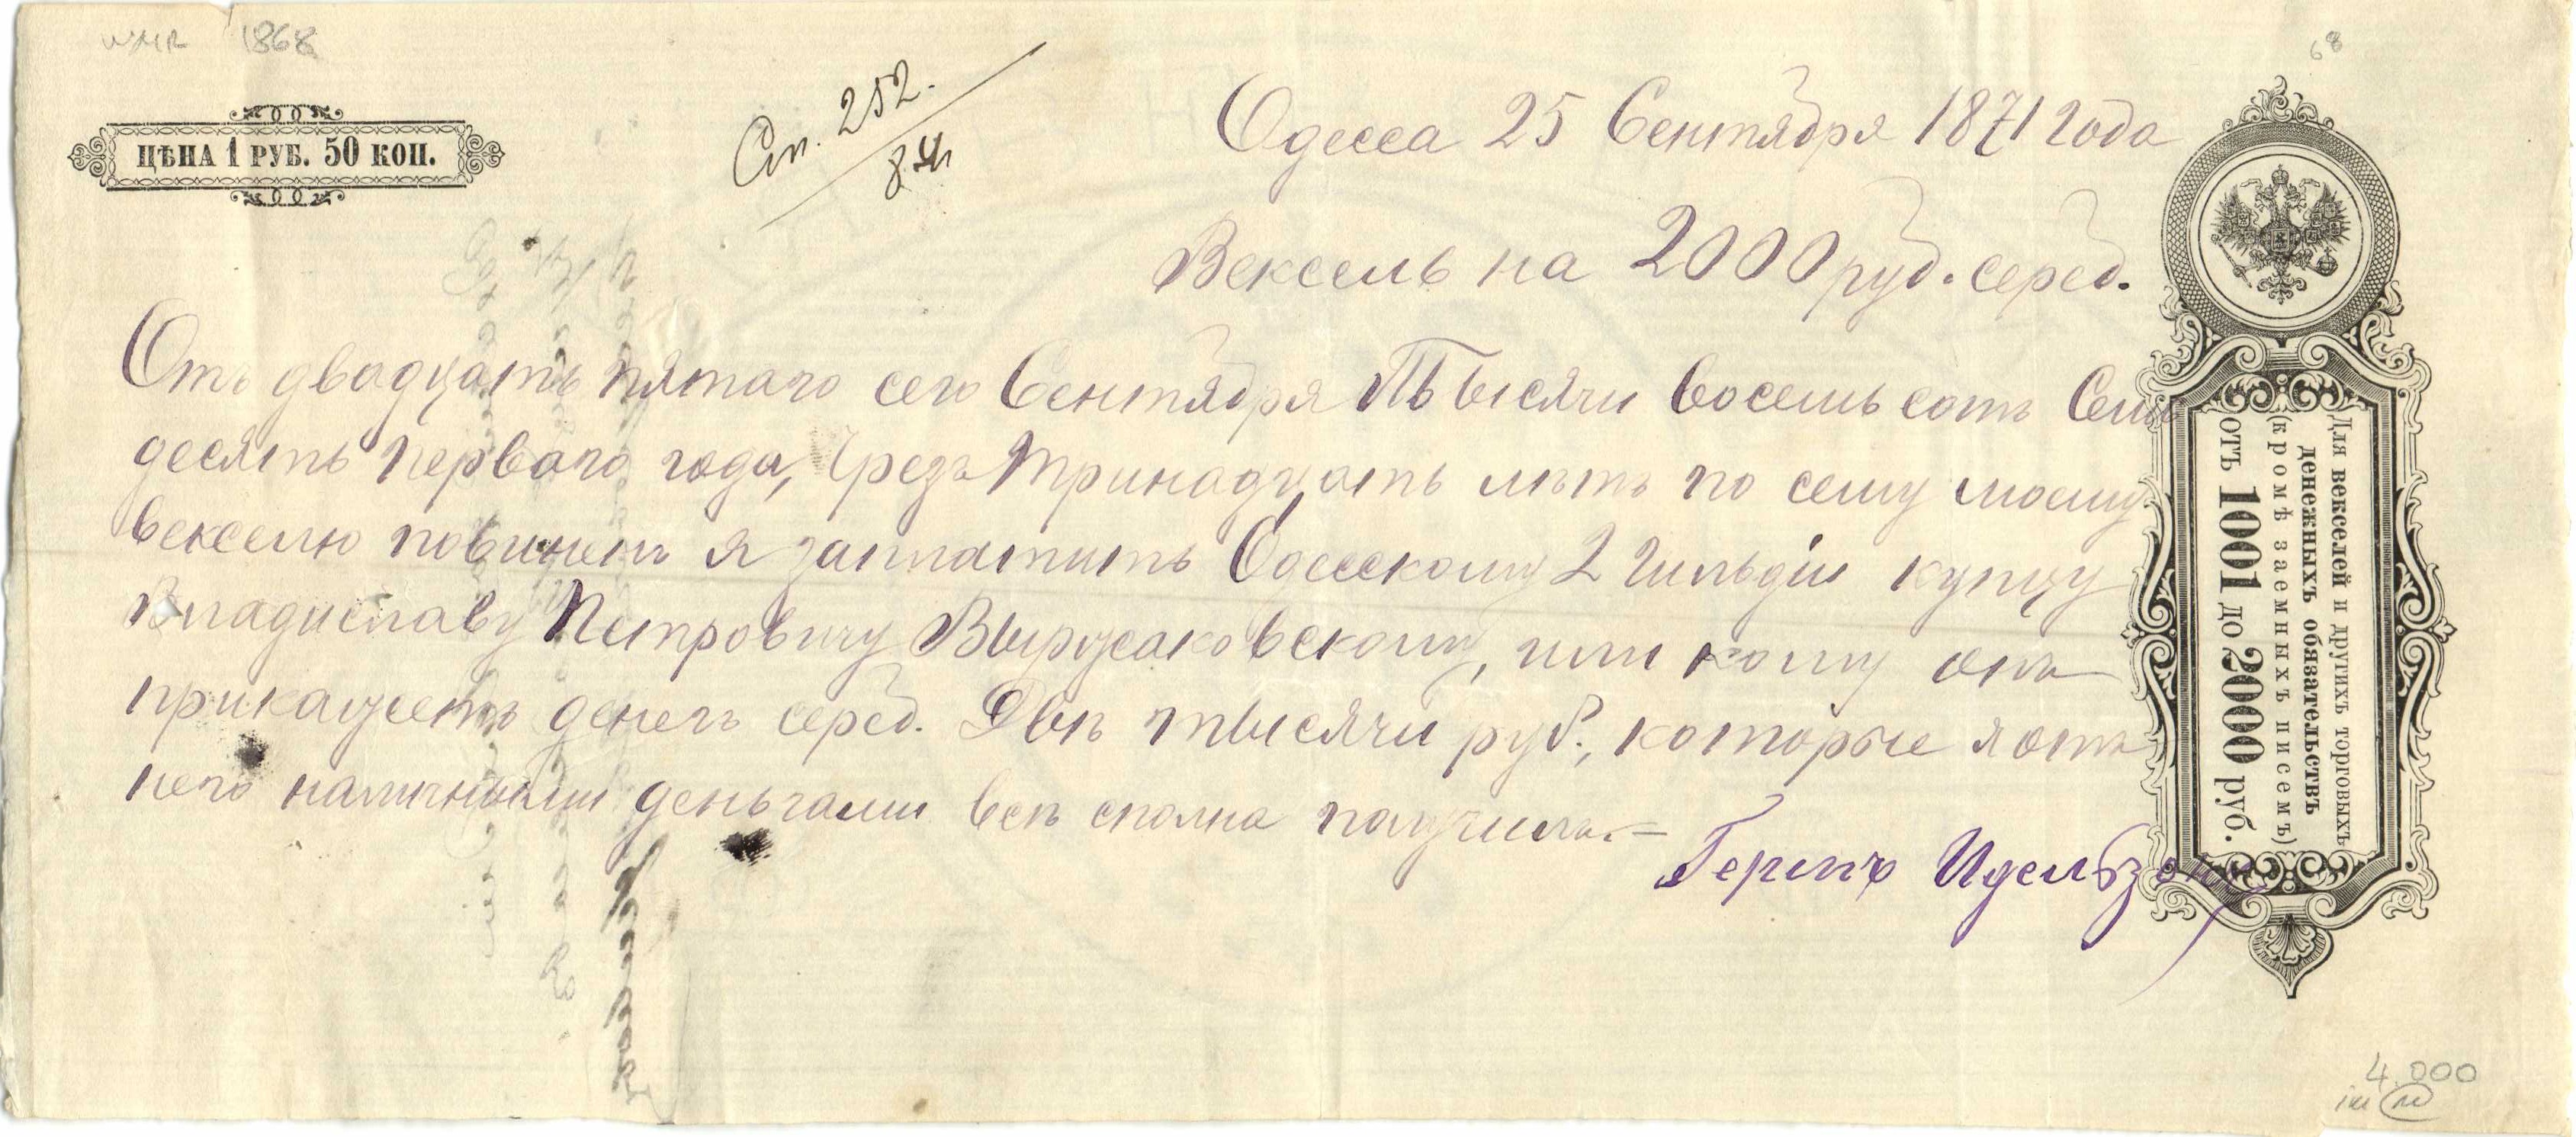 WMR 1868
68
ЦѢНА 1 РУБ. 50 КОП.
Ст. 252.
84
Одесса 25 Сентября 1871 года
Вексель на 2000 руб. сереб.
Отъ двадцать пятаго сего Сентября Тысячи восемь сотъ Семь
десятъ перваго года, чрезъ тринадцать лѣтъ по сему моему
векселю повиненъ я заплатить Одесскому 2 гильдіи купцу
Владиславу Петровичу Вырусаковскому, или кому онъ
прикажетъ денегъ сереб. Двѣ тысячи руб., которые я отъ
него наличными деньгами всѣ сполна получилъ.—
Герцъ Идельзонъ
Для векселей и другихъ торговыхъ
денежныхъ обязательствъ
(кромѣ заемныхъ писемъ)
отъ 1001 до 2000 руб.
4.000